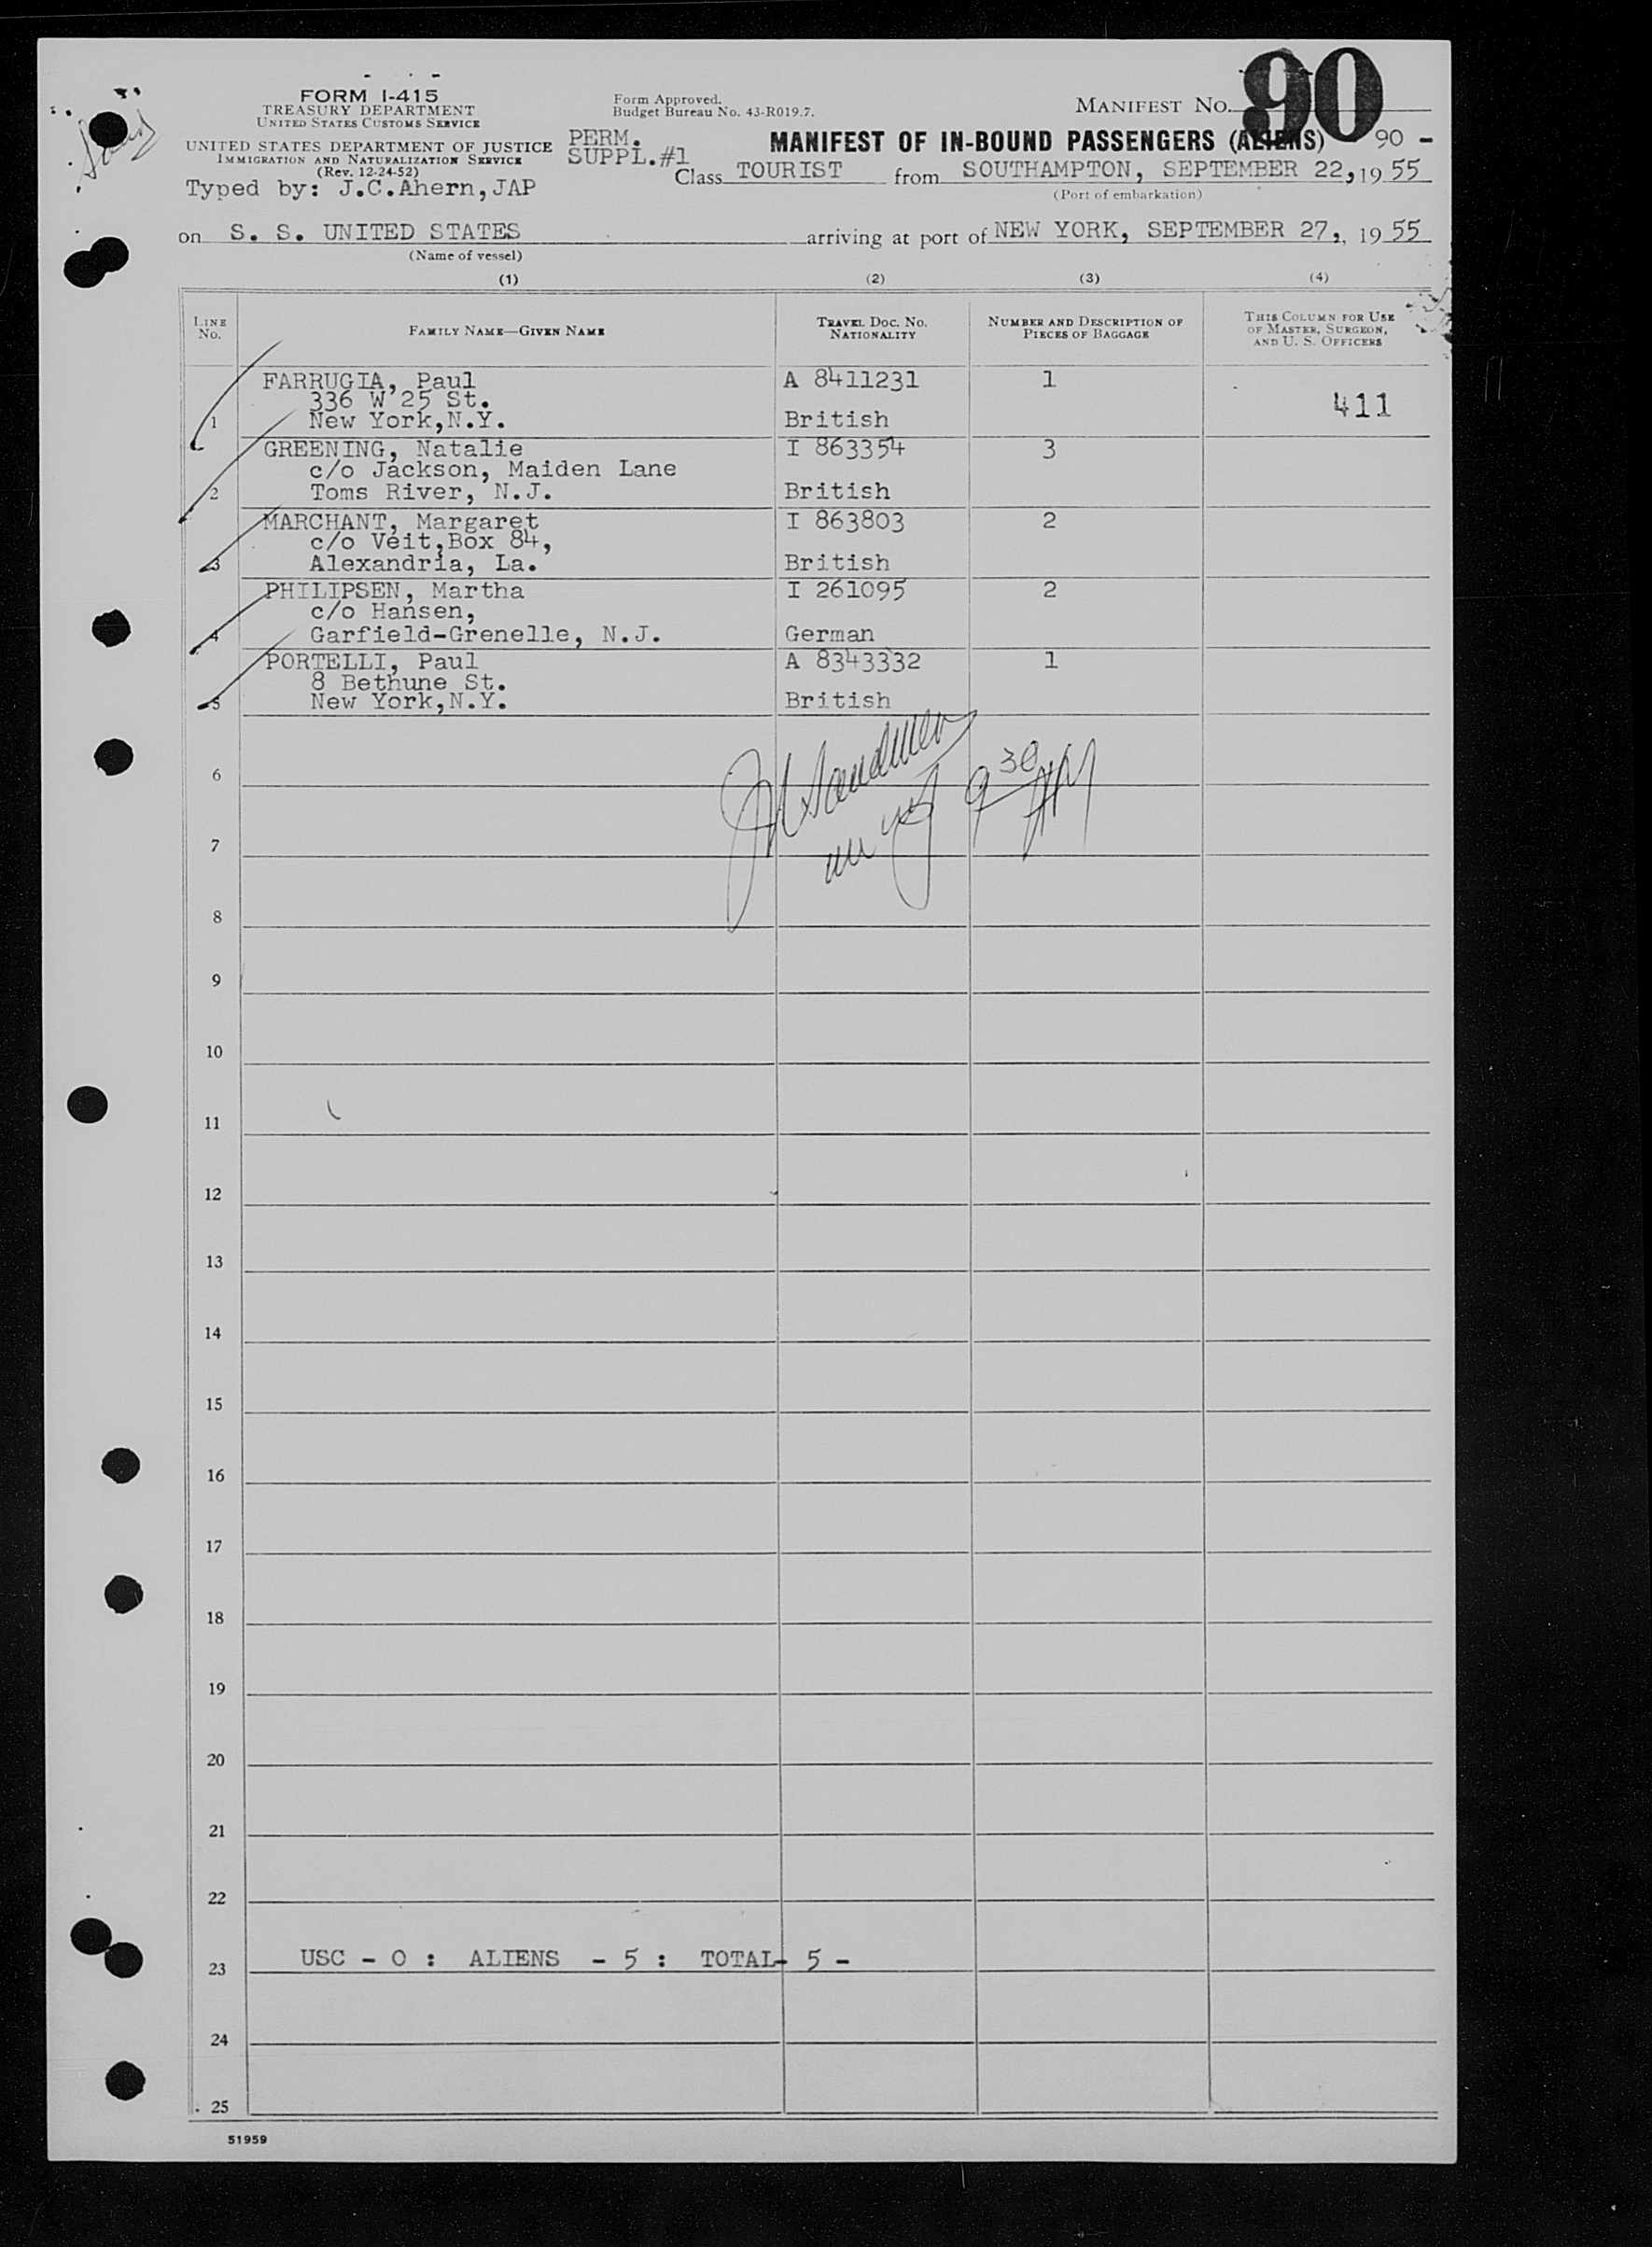 FORM I-415
TREASURY DEPARTMENT
UNITED STATES CUSTOMS SERVICE
UNITED STATES DEPARTMENT OF JUSTICE
IMMIGRATION AND NATURALIZATION SERVICE
(Rev. 12-24-52)
Typed by: J.C.Ahern,JAP
Form Approved.
Budget Bureau No. 43-R019.7.
PERM.
SUPPL.#1
MANIFEST NO. 90
MANIFEST OF IN-BOUND PASSENGERS (ALIENS) 90 -
Class TOURIST from SOUTHAMPTON, SEPTEMBER 22, 19 55
(Port of embarkation)
on S. S. UNITED STATES arriving at port of NEW YORK, SEPTEMBER 27,, 19 55
(Name of vessel)
(1) (2) (3) (4)
LINE No. FAMILY NAME—GIVEN NAME TRAVEL DOC. NO. NATIONALITY NUMBER AND DESCRIPTION OF PIECES OF BAGGAGE THIS COLUMN FOR USE OF MASTER, SURGEON, AND U. S. OFFICERS
FARRUGIA, Paul A 8411231 1
336 W 25 St. 411
1 New York,N.Y. British
GREENING, Natalie I 863354 3
c/o Jackson, Maiden Lane
2 Toms River, N.J. British
MARCHANT, Margaret I 863803 2
c/o Veit,Box 84,
3 Alexandria, La. British
PHILIPSEN, Martha I 261095 2
c/o Hansen,
4 Garfield-Grenelle, N.J. German
PORTELLI, Paul A 8343332 1
8 Bethune St.
5 New York,N.Y. British
9 30
6
7
8
9
10
11
12
13
14
15
16
17
18
19
20
21
22
23 USC - 0 : ALIENS - 5 : TOTAL- 5 -
24
25
51959